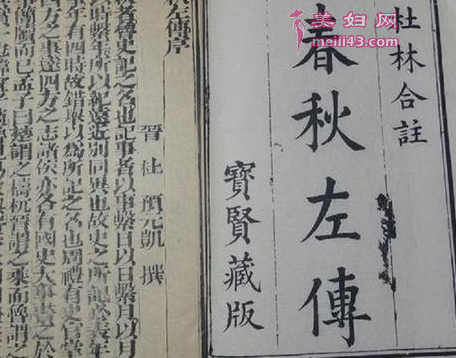 春妇网
meili43.com
杜林合註
春秋左傳
寶賢藏版
左傳序
晉 杜 預元凱 撰
魯史記之名也記事者以事繫日以日繫月以月
時繫年所以紀遠近別同異也故史之所記必表年
事年有四時故錯舉以爲所記之名也周禮有史官掌
四方之事達四方之志諸侯亦各有國史大事書之於
事簡牘而已孟子曰楚謂之檮杌晉謂之乘而魯謂